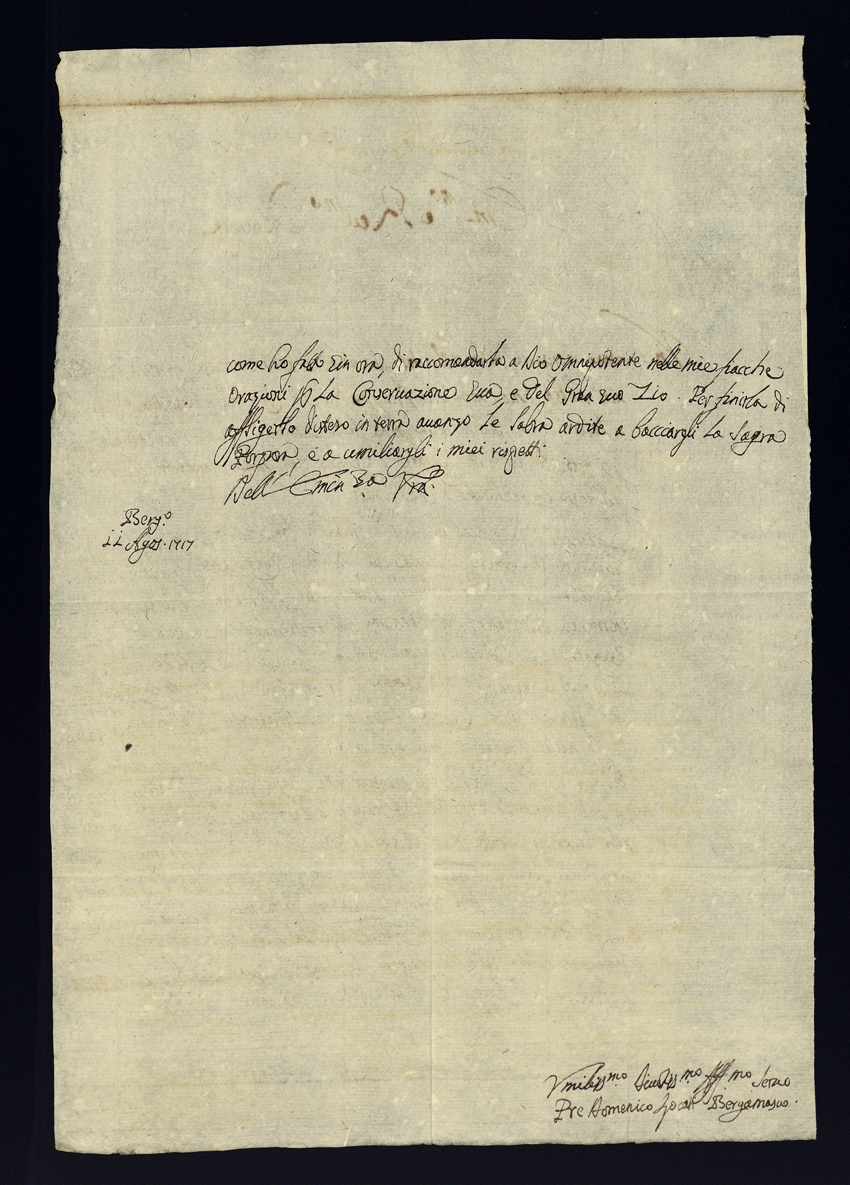 come ho fatto sin ora, di raccomandarla a Dio Omnipotente nelle mie fiacche
Orazioni p La Conseruazione Sua, e del Suo Zio. Per finirla di
affligerlo disteso in terra auanzo le labra ardite a bacciargli la Sagra
Porpora, e a umiliargli i miei rispetti.
Dell' Emin.za Vra.
Berg.o
11 Agos. 1717
Vmiliss.mo Diuotiss.mo Seruo
Pre Domenico Bergamasco.